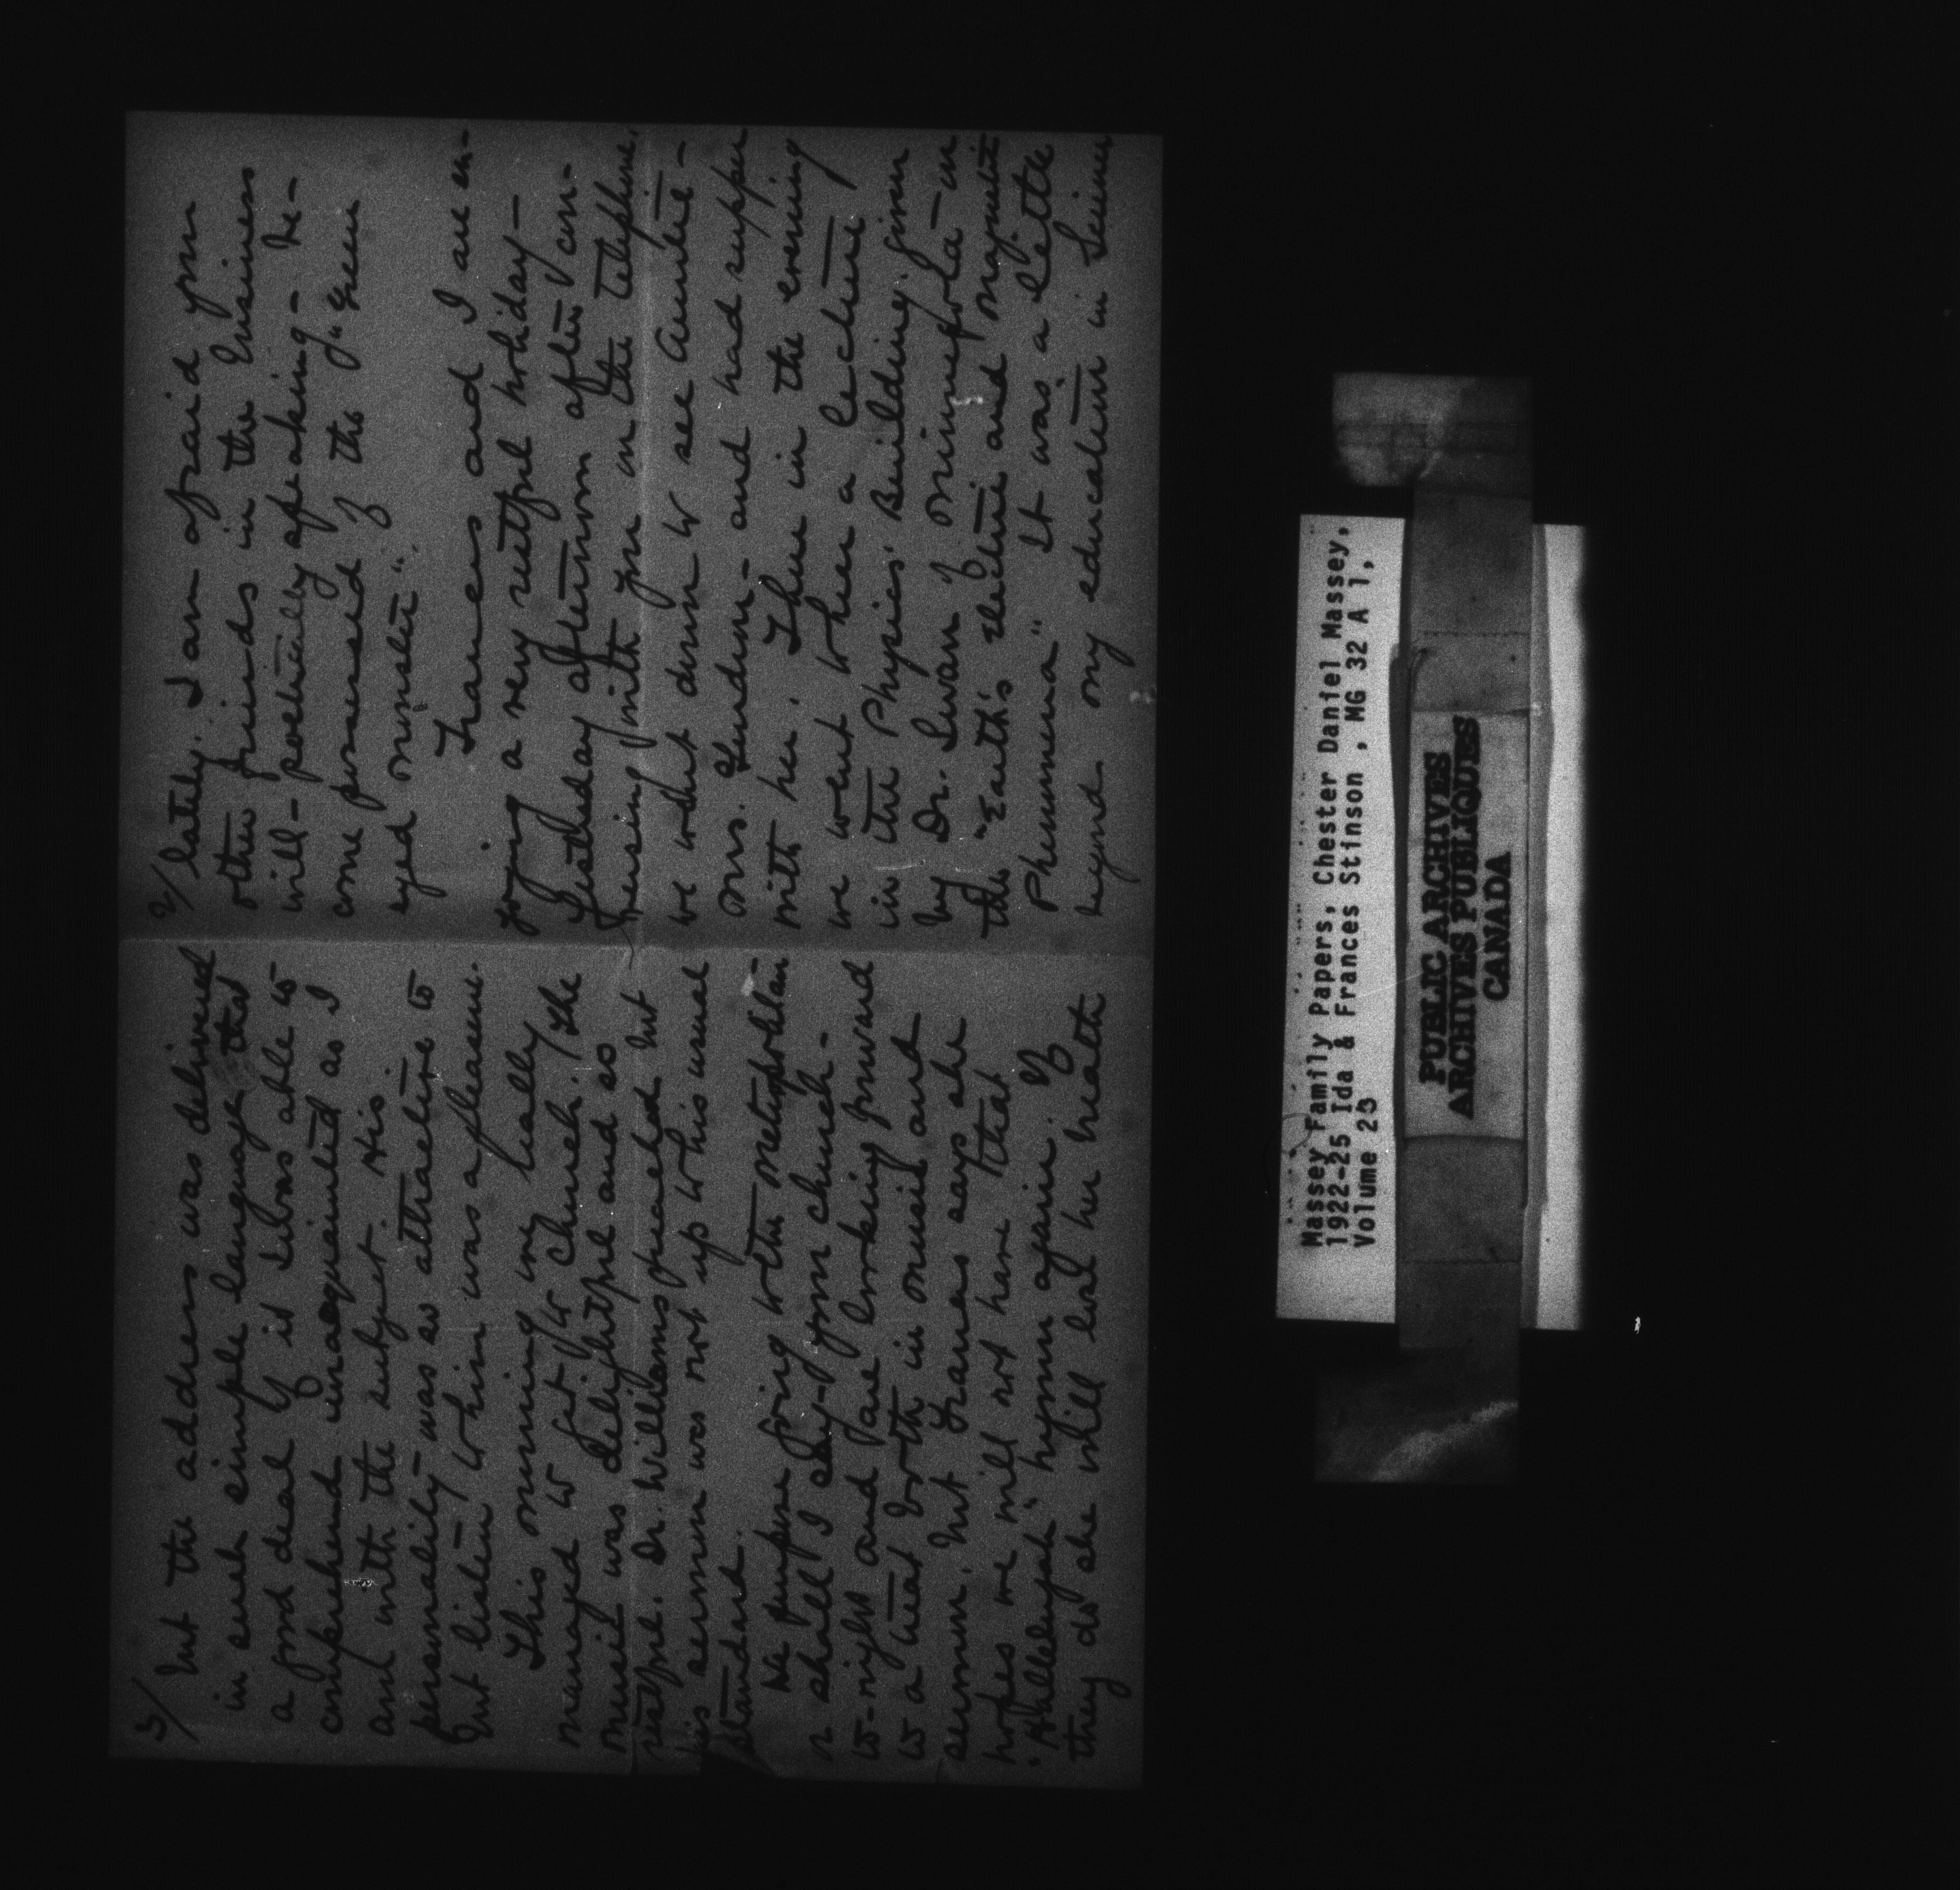 2/ lately. I am afraid your
other friends in the business
will - poetically speaking - be-
come possessed of the "green
eyed monster".
Frances and I are en-
joying a very restful holiday -
Yesterday afternoon after con-
versing with you on the telephone,
we went down to see Auntie -
Mrs. - and had supper
with her. Then in the evening
we went to hear a lecture
in the Physics Building, given
by Dr. Swan of Minnesota - on
the "Earth's electric and magnetic
Phenomena" It was a little
beyond my education in Science
3/ but the address was delivered
in such simple language that
a good deal of it I was able to
comprehend unacquainted as I
am with the subject. His
personality was so attractive to
but listen to him was a pleasure.
This morning we really
managed to get to church. The
music was delightful and so
restful. Dr. Williams preached but
his sermon was not up to his usual
standard.
We purpose going to the Metropolitan
or shall I say - your church -
to-night and are looking forward
to a treat both in music and
sermon, but Frances says she
hopes we will not have that
"Hallelujah" hymn again. If
they do she will lose her breath
Massey Family Papers, Chester Daniel Massey,
1922-25 Ida & Frances Stinson , MG 32 A 1,
Volume 23
PUBLIC ARCHIVES
ARCHIVES PUBLIQUES
CANADA